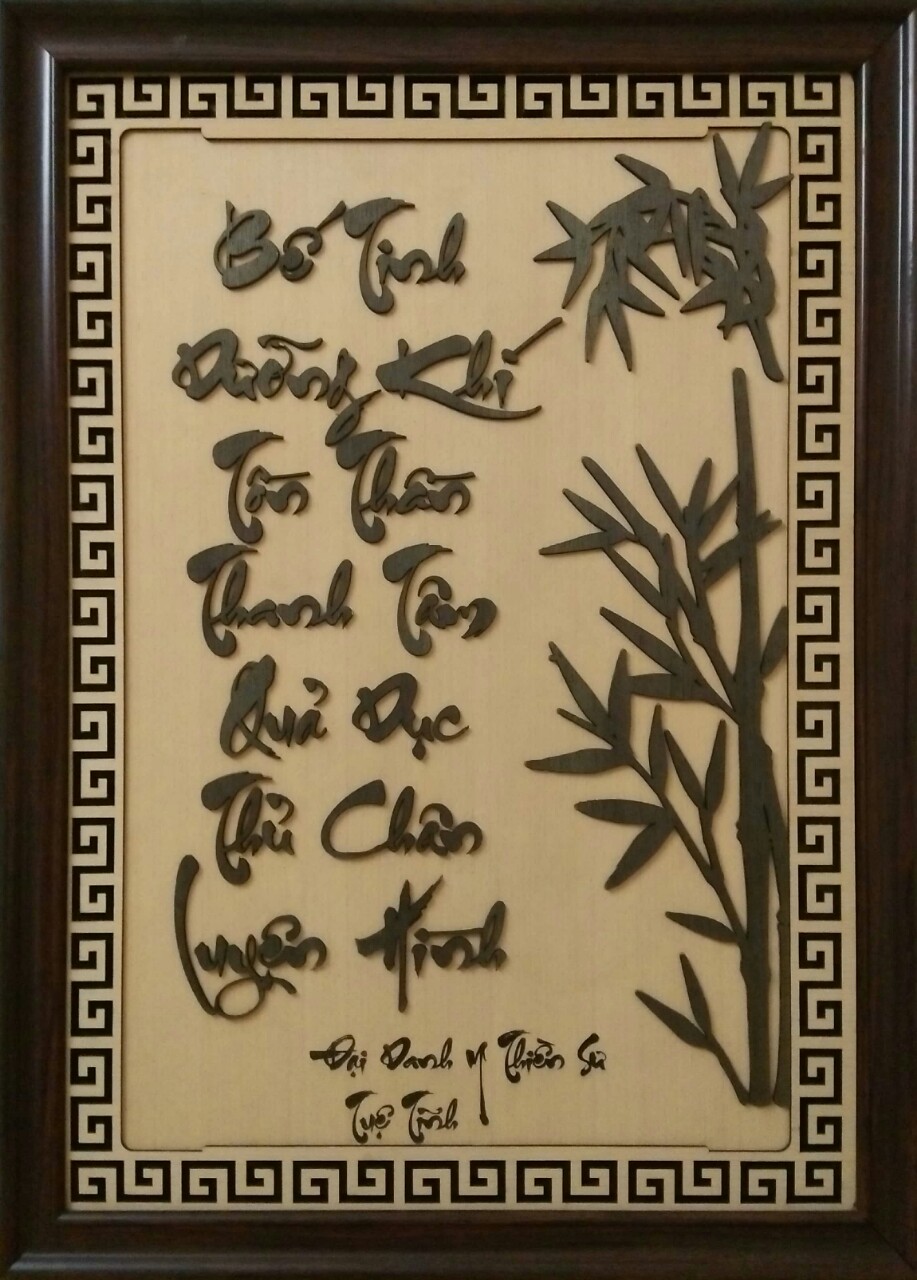 Bế Tinh
Dưỡng Khí
Tồn Thần
Thanh Tâm
Quả Dục
Thủ Chân
Luyện Hình
Đại Danh y Thiền Sư
Tuệ Tĩnh